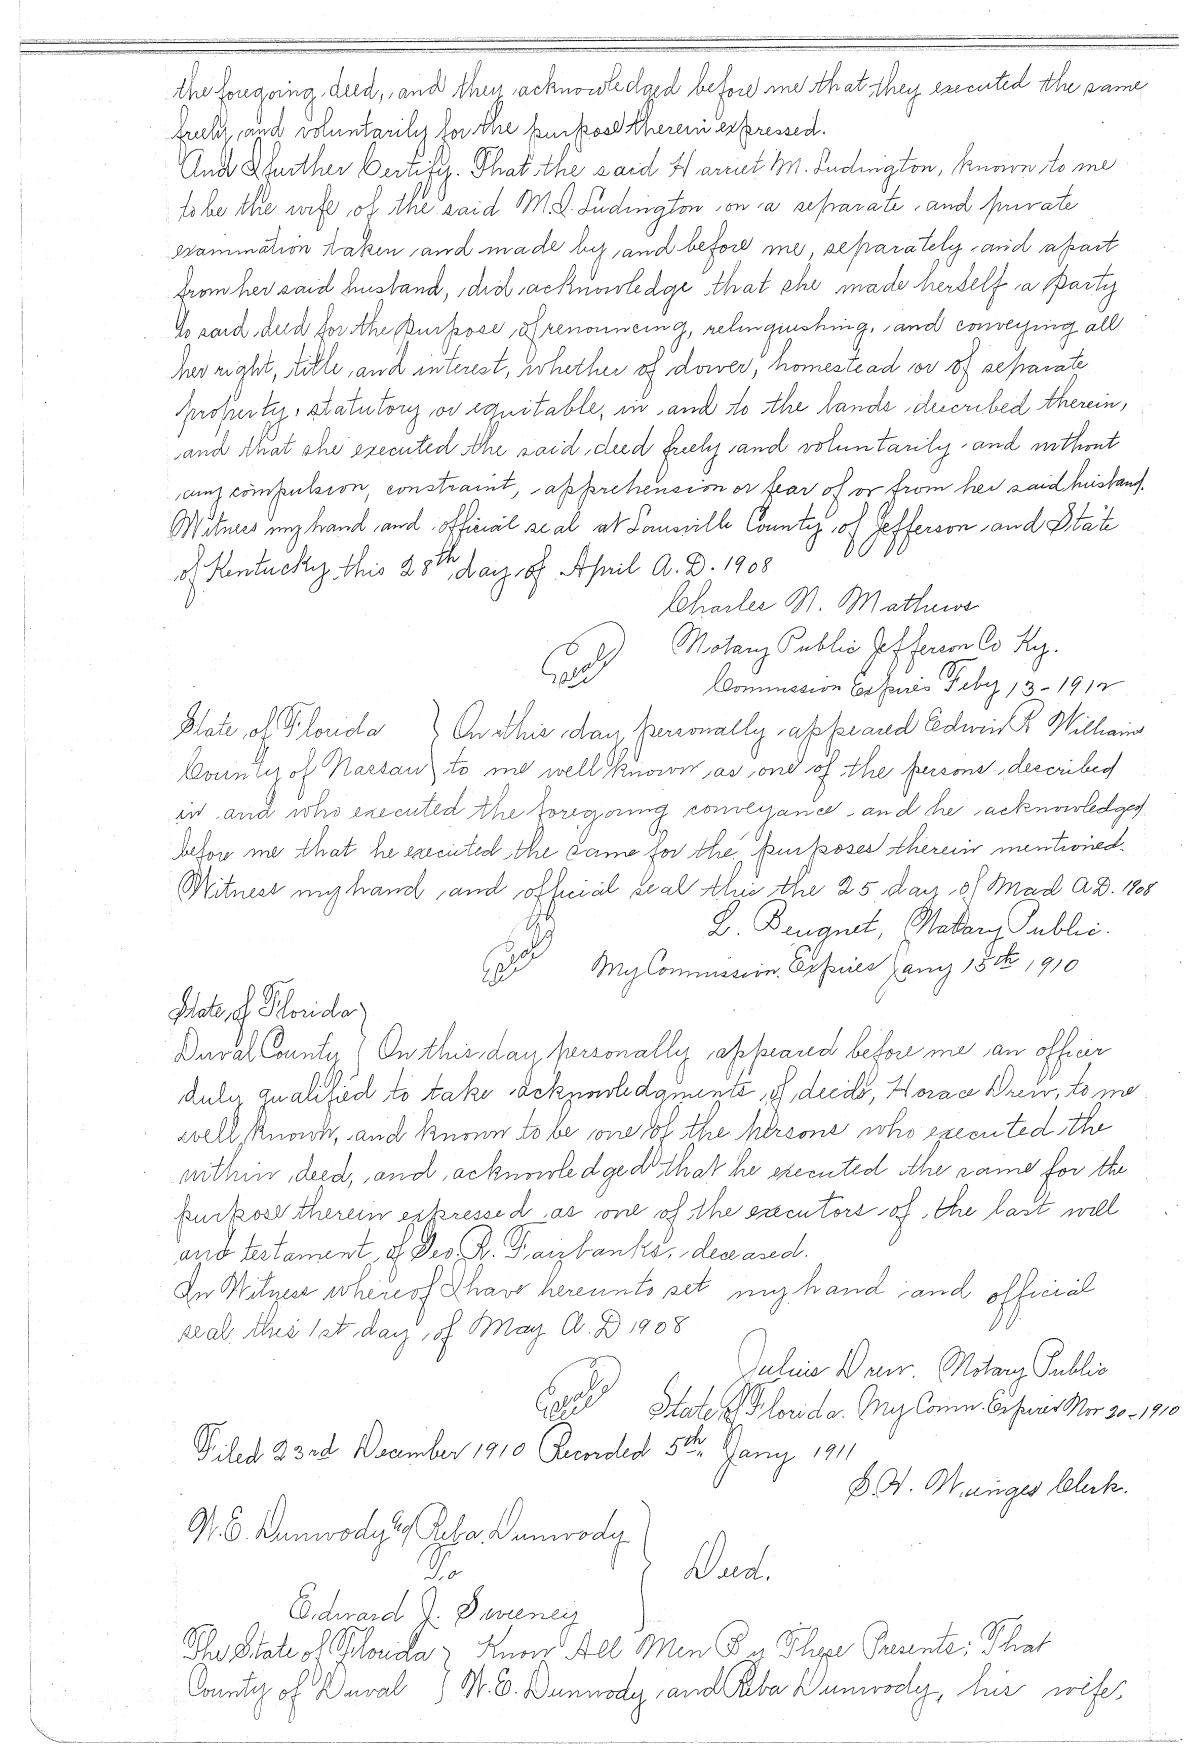 the foregoing deed, and they acknowledged before me that they executed the same
freely and voluntarily for the purpose therein expressed.
And I further Certify. That the said Harriet M. Ludington, known to me
to be the wife of the said M.I. Ludington on a separate and private
examination taken and made by and before me, separately and apart
from her said husband, did acknowledge that she made herself a party
to said deed for the purpose of renouncing, relinquishing, and conveying all
her right, title and interest, whether of dower, homestead or of separate
property, statutory or equitable, in and to the lands described therein,
and that she executed the said deed freely and voluntarily and without
any compulsion, constraint, apprehension or fear of or from her said husband.
Witness my hand and official seal at Louisville County of Jefferson and State
of Kentucky this 28th day of April A.D. 1908
Charles N. Mathews
Seal Notary Public Jefferson Co Ky.
Commission Expires Feby 13-1912
State of Florida } On this day personally appeared Edwin R Williams
County of Nassau } to me well known as one of the persons described
in and who executed the foregoing conveyance and he acknowledged
before me that he executed the same for the purposes therein mentioned.
Witness my hand and official seal this the 25 day of A.D. 1908
L. Beugnet, Notary Public.
Seal My Commission Expires Jany 15th 1910
State of Florida }
Duval County } On this day personally appeared before me an officer
duly qualified to take acknowledgments of deeds, Horace Drew, to me
well known, and known to be one of the persons who executed the
within deed, and acknowledged that he executed the same for the
purpose therein expressed as one of the executors of the last will
and testament of Geo. R. Fairbanks, deceased.
In Witness whereof I have hereunto set my hand and official
seal this 1st day of May A.D 1908
Julius Drew. Notary Public
Seal State of Florida. My Comm. Expires Nov 20-1910
Filed 23rd December 1910 Recorded 5th Jany 1911
Clerk.
W.E. Dunwody & Reba Dunwody }
To } Deed.
Edward J. Sweeney }
The State of Florida } Know All Men By These Presents; That
County of Duval } W.E. Dunwody and Reba Dunwody, his wife,